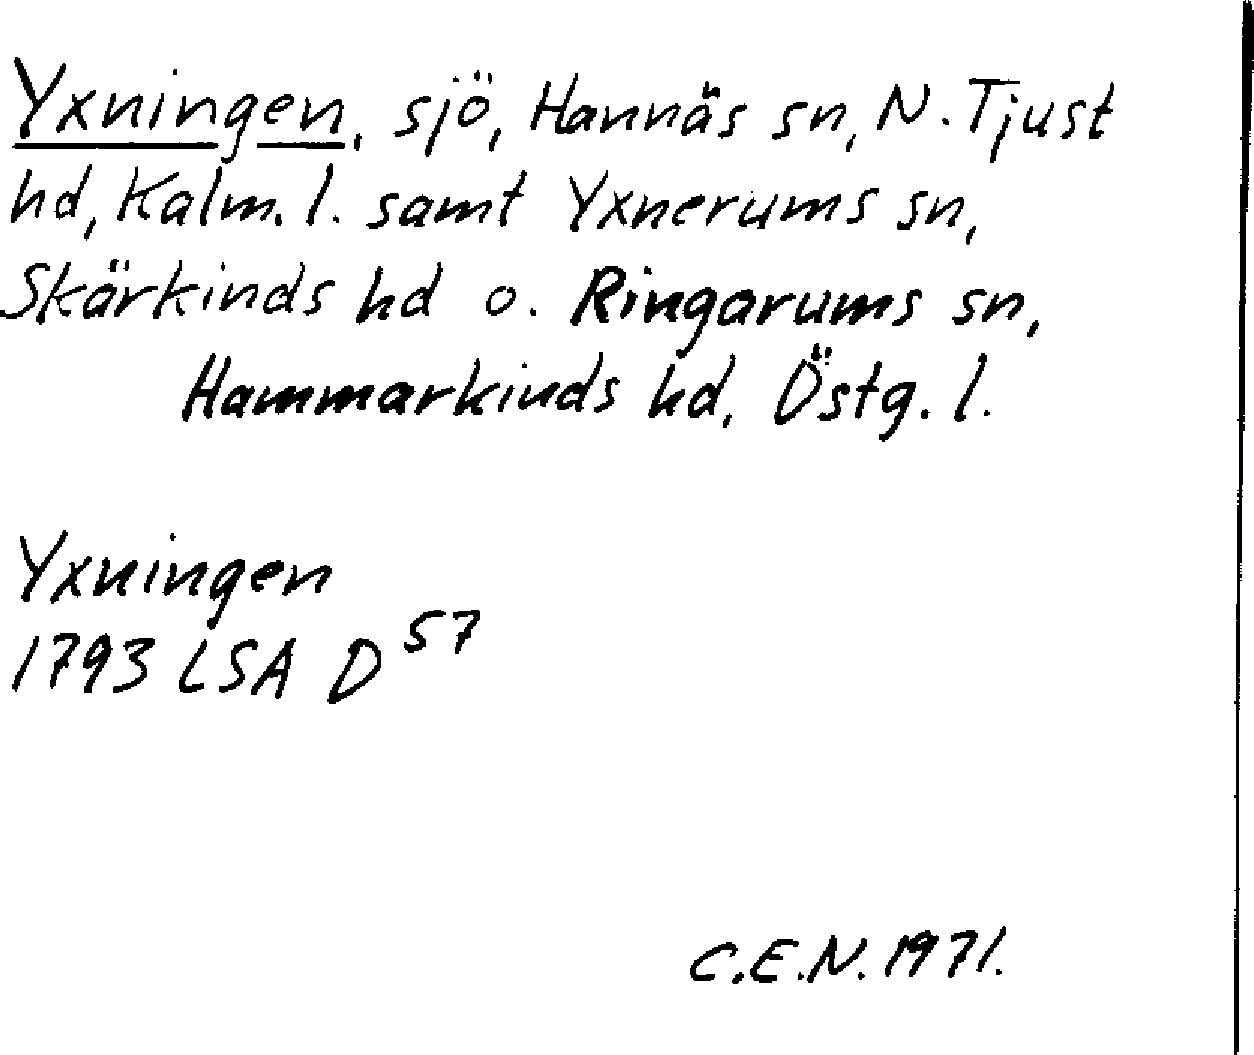 Yxningen, sjö, Hannäs sn, N. Tjust
hd, Kalm. l. samt Yxnerums sn,
Skärkinds hd o. Ringarums sn,
Hammarkinds hd, Östg. l.
Yxningen
1793 LSA D 57
C.E.N. 1971.